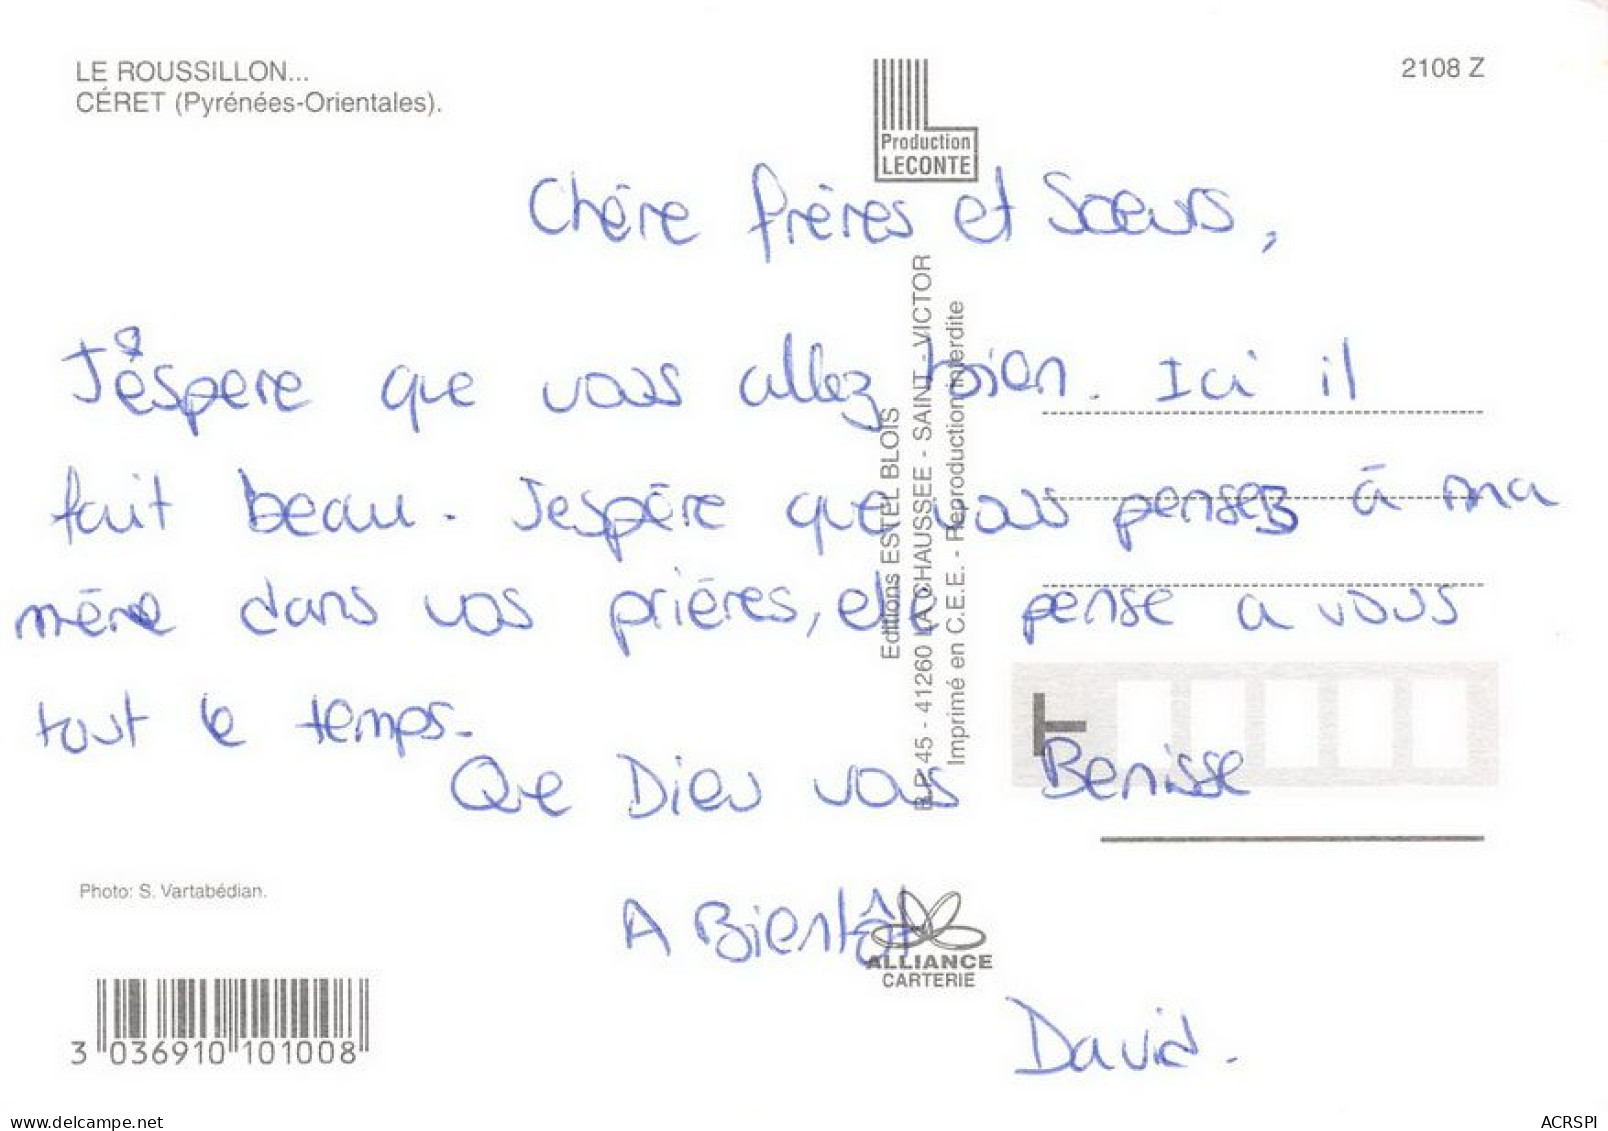 LE ROUSSILLON...
CÉRET (Pyrénées-Orientales).
2108 Z
Production
LECONTE
Chère frères et Soeurs,
J'éspere que vous allez bien. Ici il
fait beau. J'espère que vous pensez à ma
mère dans vos prières, elle pense a vous
tout le temps.
Que Dieu vous Benisse
A Bientôt
David.
Editions ESTEL BLOIS
B.P. 45 - 41260 LA CHAUSSEE - SAINT - VICTOR
Imprimé en C.E.E. - Reproduction interdite
Photo: S. Vartabédian.
ALLIANCE
CARTERIE
3 036910 101008
www.delcampe.net
ACRSPI